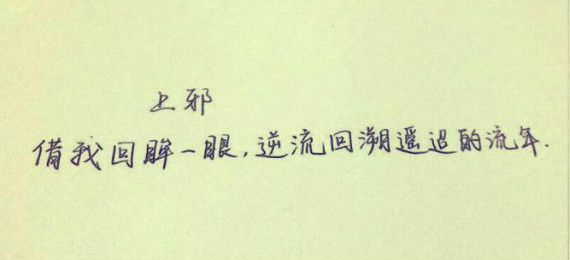 上邪
借我回眸一眼,逆流回溯遥迢的流年.